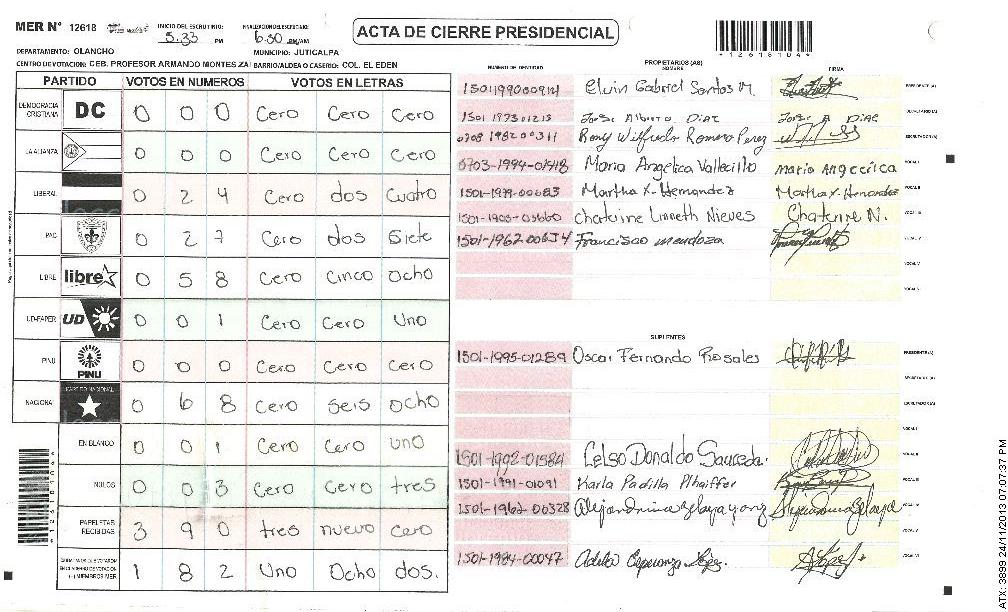 MER N° 12618 INICIO DEL ESCRUTINIO: 5:33 PM FINALIZACION DEL ESCRUTINIO: 6:50 PM/AM
ACTA DE CIERRE PRESIDENCIAL
*12618104*
DEPARTAMENTO: OLANCHO MUNICIPIO: JUTICALPA
CENTRO DE VOTACION: CEB. PROFESOR ARMANDO MONTES ZA BARRIO/ALDEA O CASERIO: COL. EL EDEN
PARTIDO VOTOS EN NUMEROS VOTOS EN LETRAS
DEMOCRACIA CRISTIANA DC 0 0 0 Cero Cero Cero
LA ALIANZA 0 0 0 Cero Cero Cero
LIBERAL 0 2 4 Cero dos Cuatro
PAC 0 2 7 Cero dos Siete
LIBRE libre 0 5 8 Cero Cinco Ocho
UD-FAPER UD 0 0 1 Cero Cero Uno
PINU PINU 0 0 0 Cero Cero Cero
NACIONAL PARTIDO NACIONAL 0 6 8 Cero Seis Ocho
EN BLANCO 0 0 1 Cero Cero uno
NULOS 0 0 3 Cero Cero tres
PAPELETAS RECIBIDAS 3 9 0 tres nuevo cero
(-) MIEMBROS MER 1 8 2 Uno Ocho dos.
NUMERO DE IDENTIDAD PROPIETARIOS (AS) NOMBRE FIRMA
Elvin Gabriel Santos M. PRESIDENTE (A)
1501 1973 01215 Jorge Alberto Diaz Jorge A Diaz SECRETARIO (A)
0708 1982 00311 Rony Wilfredo Romero Perez ESCRUTADOR (A)
0703-1994-01418 Maria Angelica Vallecillo Maria Angelica VOCAL I
1501-1979-00683 Martha X. Hernandez Martha X. Hernandez VOCAL II
Chaterine Linneth Nieves Chaterine N. VOCAL III
1501-1962-00634 Francisco mendoza VOCAL IV
VOCAL V
SUPLENTES
1501-1995-01289 Oscar Fernando Rosales PRESIDENTE (A)
SECRETARIO (A)
ESCRUTADOR (A)
VOCAL I
1501-1992-01584 Celso Donaldo Sauceda. VOCAL II
1501-1991-01091 Karla Padilla Plhaiffer VOCAL III
1501-1962-00328 Alejandrina Zelaya yanez Alejandrina Zelaya VOCAL IV
1501-1984-00047 Esperanza López. VOCAL VI
ATX: 3899 24/11/2013 07:07:37 PM